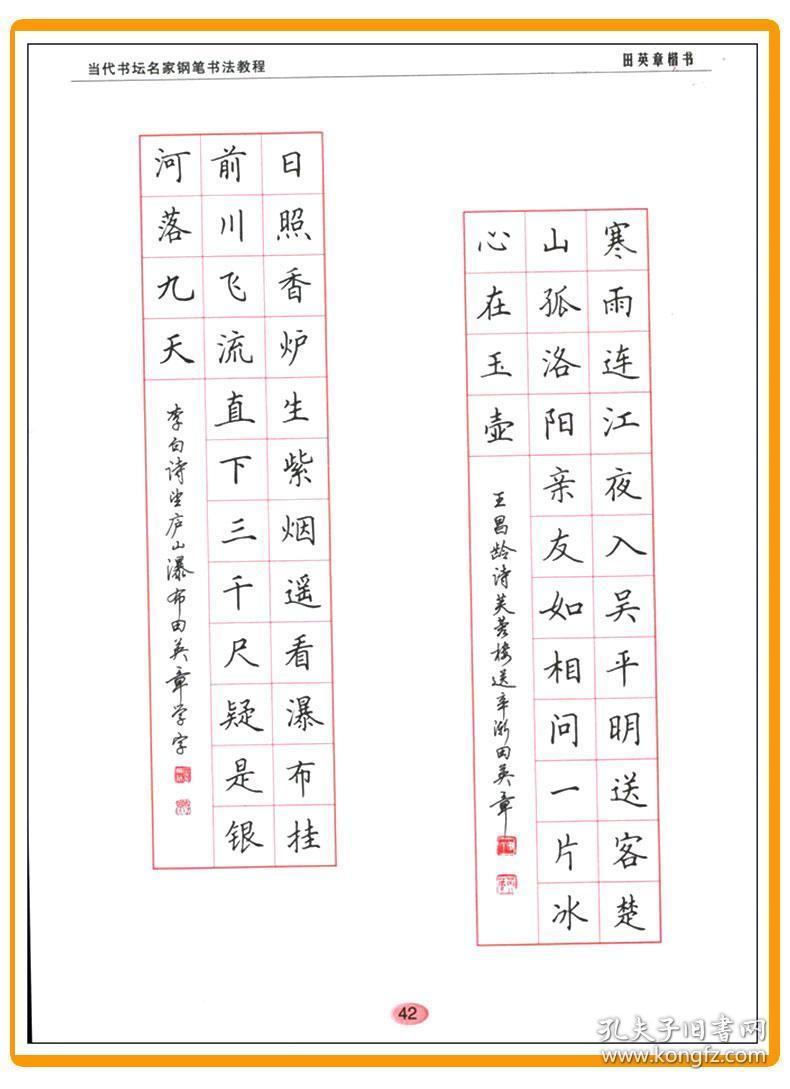 当代书坛名家钢笔书法教程
田英章楷书
寒雨连江夜入吴平明送客楚
山孤洛阳亲友如相问一片冰
心在玉壶
王昌龄诗芙蓉楼送辛渐田英章
日照香炉生紫烟遥看瀑布挂
前川飞流直下三千尺疑是银
河落九天
李白诗望庐山瀑布田英章学字
42
孔夫子旧书网
www.kongfz.com